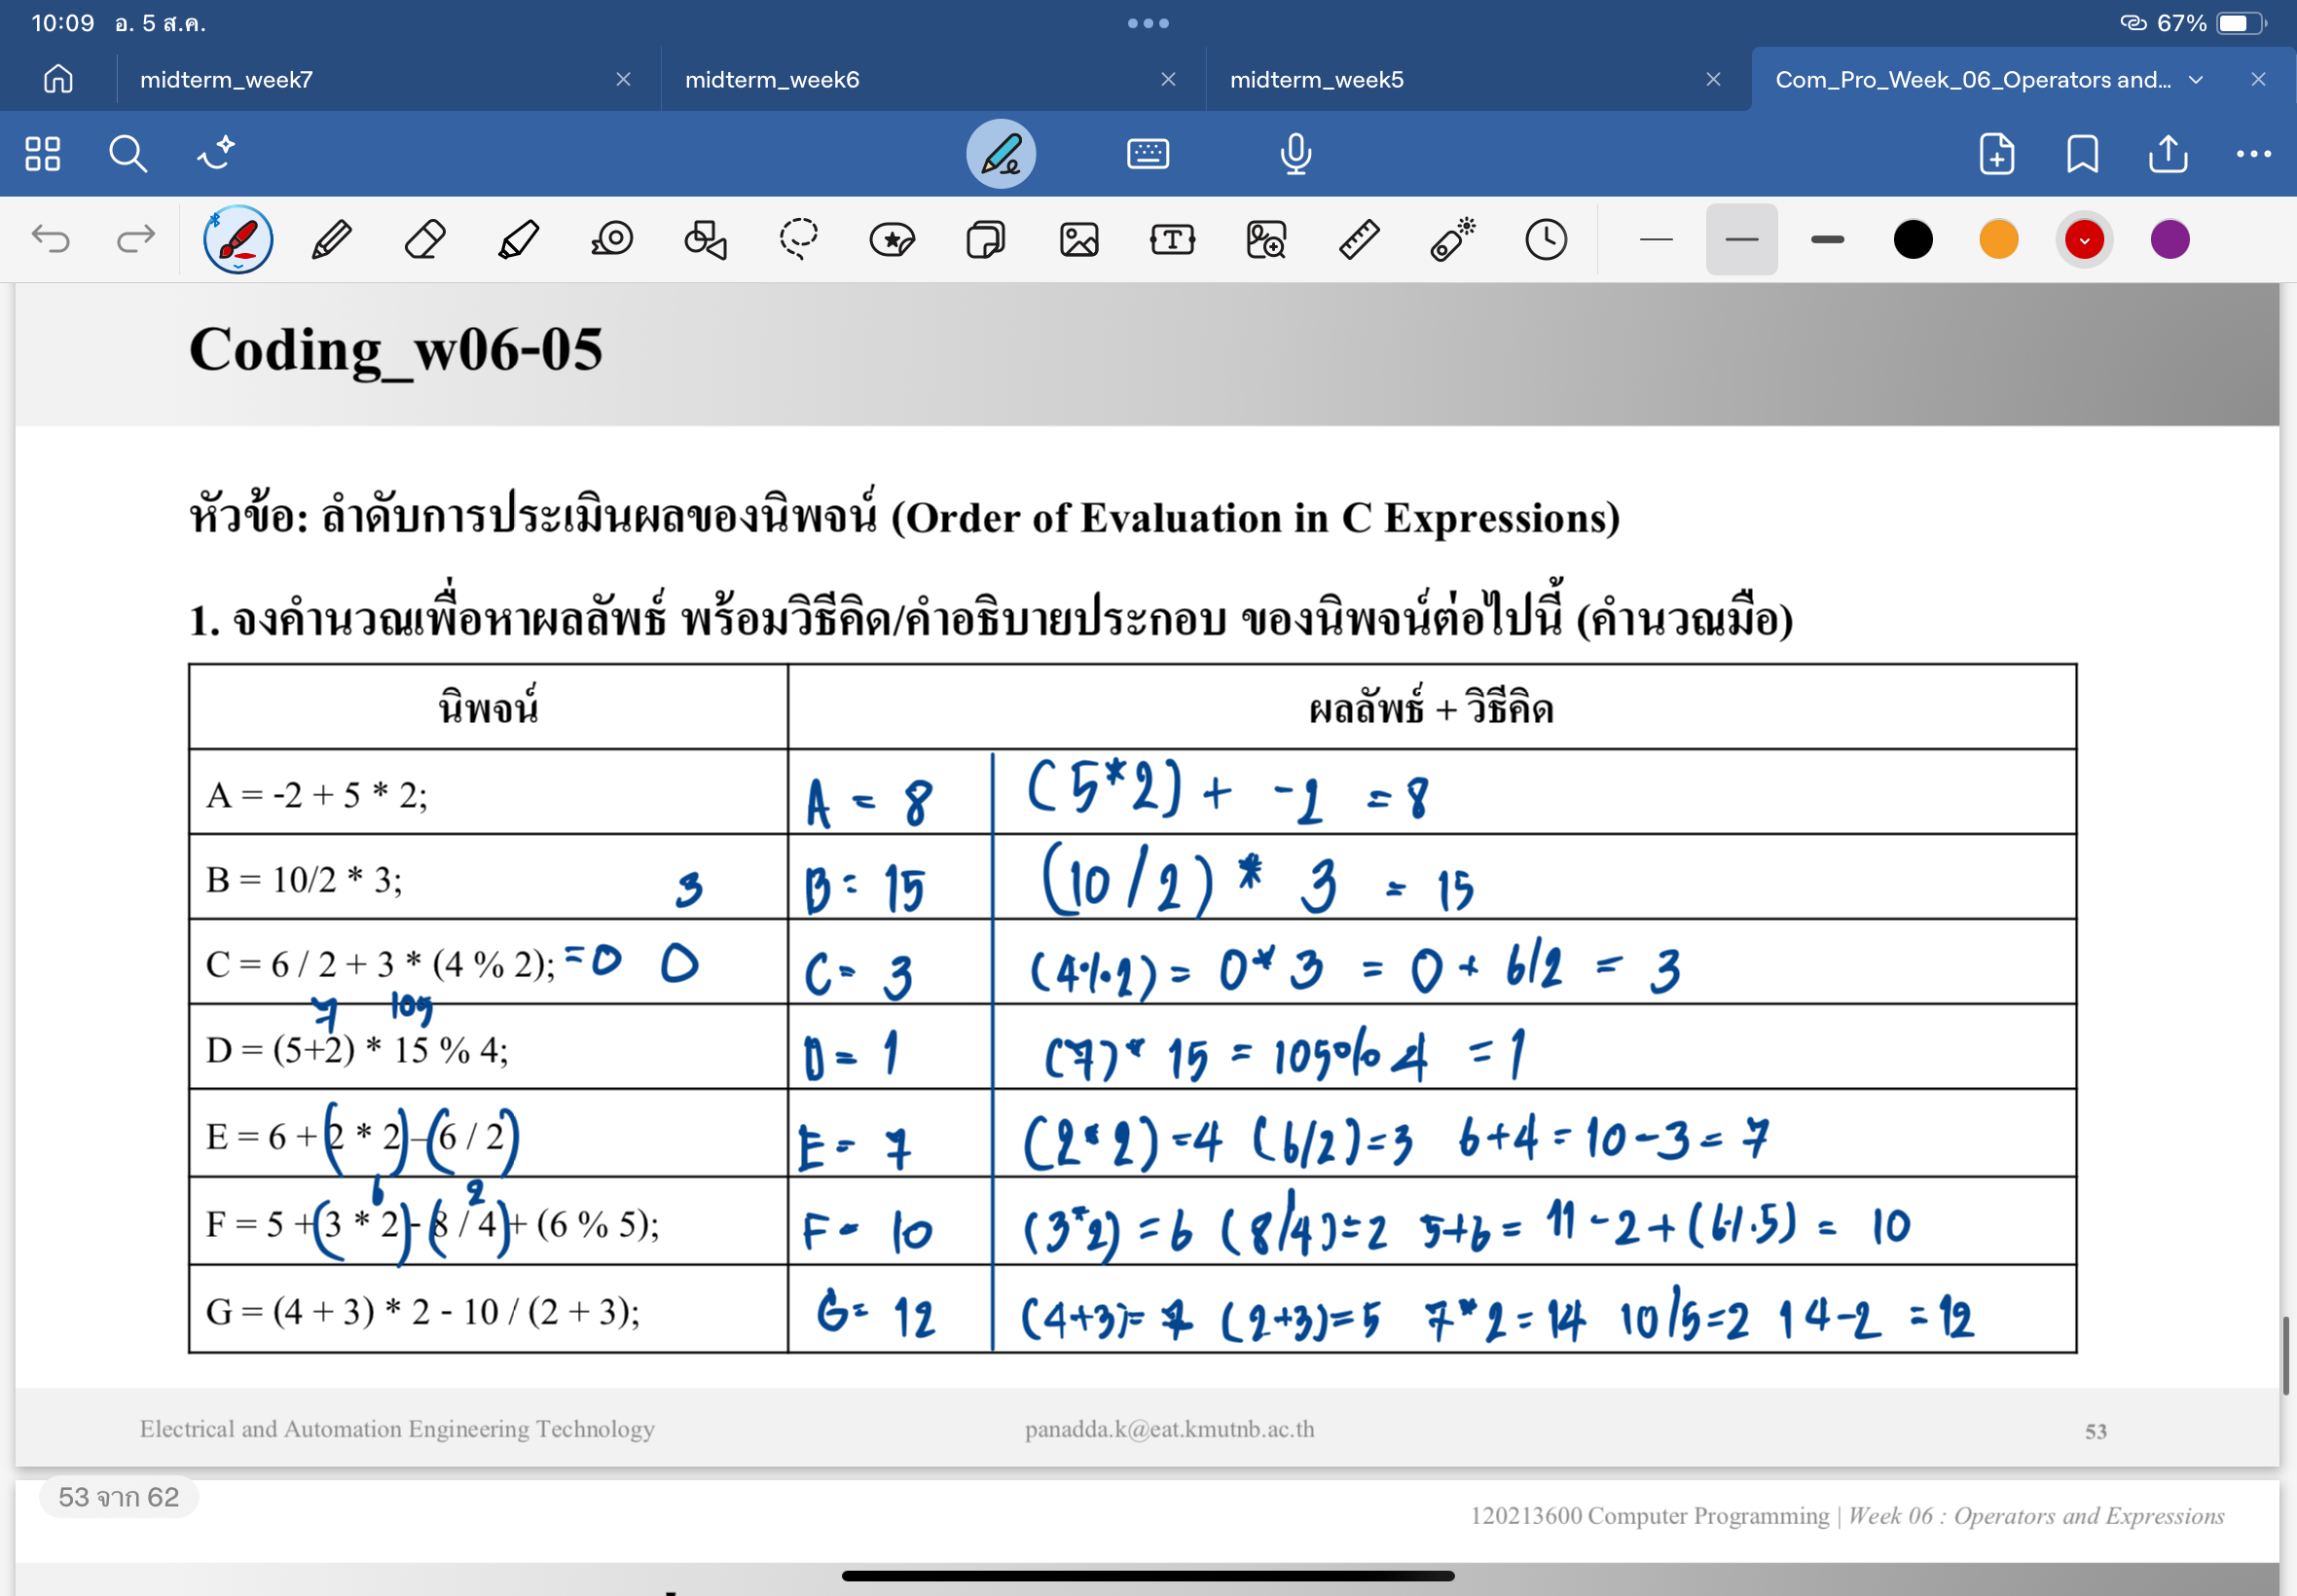 10:09 อ. 5 ส.ค. 67%
midterm_week7 midterm_week6 midterm_week5 Com_Pro_Week_06_Operators and...
Coding_w06-05
หัวข้อ: ลำดับการประเมินผลของนิพจน์ (Order of Evaluation in C Expressions)
1. จงคำนวณเพื่อหาผลลัพธ์ พร้อมวิธีคิด/คำอธิบายประกอบ ของนิพจน์ต่อไปนี้ (คำนวณมือ)
นิพจน์ ผลลัพธ์ + วิธีคิด
A = -2 + 5 * 2; A = 8 (5*2) + -2 = 8
B = 10/2 * 3; 3 B = 15 (10/2) * 3 = 15
C = 6 / 2 + 3 * (4 % 2); =0 0 C = 3 (4%2) = 0*3 = 0 + 6/2 = 3
7 105
D = (5+2) * 15 % 4; D = 1 (7)* 15 = 105%4 = 1
E = 6 + (2 * 2) – (6 / 2) E = 7 (2*2)=4 (6/2)=3 6+4=10-3=7
6 2
F = 5 + (3 * 2) - (8 / 4) + (6 % 5); F = 10 (3*2)=6 (8/4)=2 5+6= 11-2+(6%5) = 10
G = (4 + 3) * 2 - 10 / (2 + 3); G = 12 (4+3)= 7 (2+3)=5 7*2=14 10/5=2 14-2 =12
Electrical and Automation Engineering Technology panadda.k@eat.kmutnb.ac.th 53
53 จาก 62
120213600 Computer Programming | Week 06 : Operators and Expressions